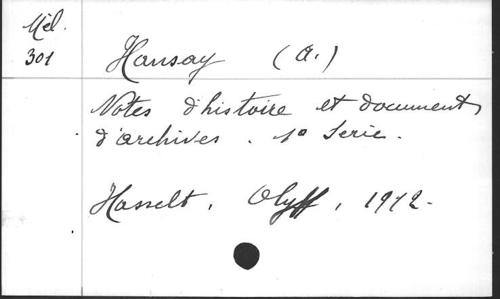 Mél.
301
Hansay (A.)
Notes d'histoire et documents
d'archives. 1º Serie.
Hasselt, Olyff, 1912.